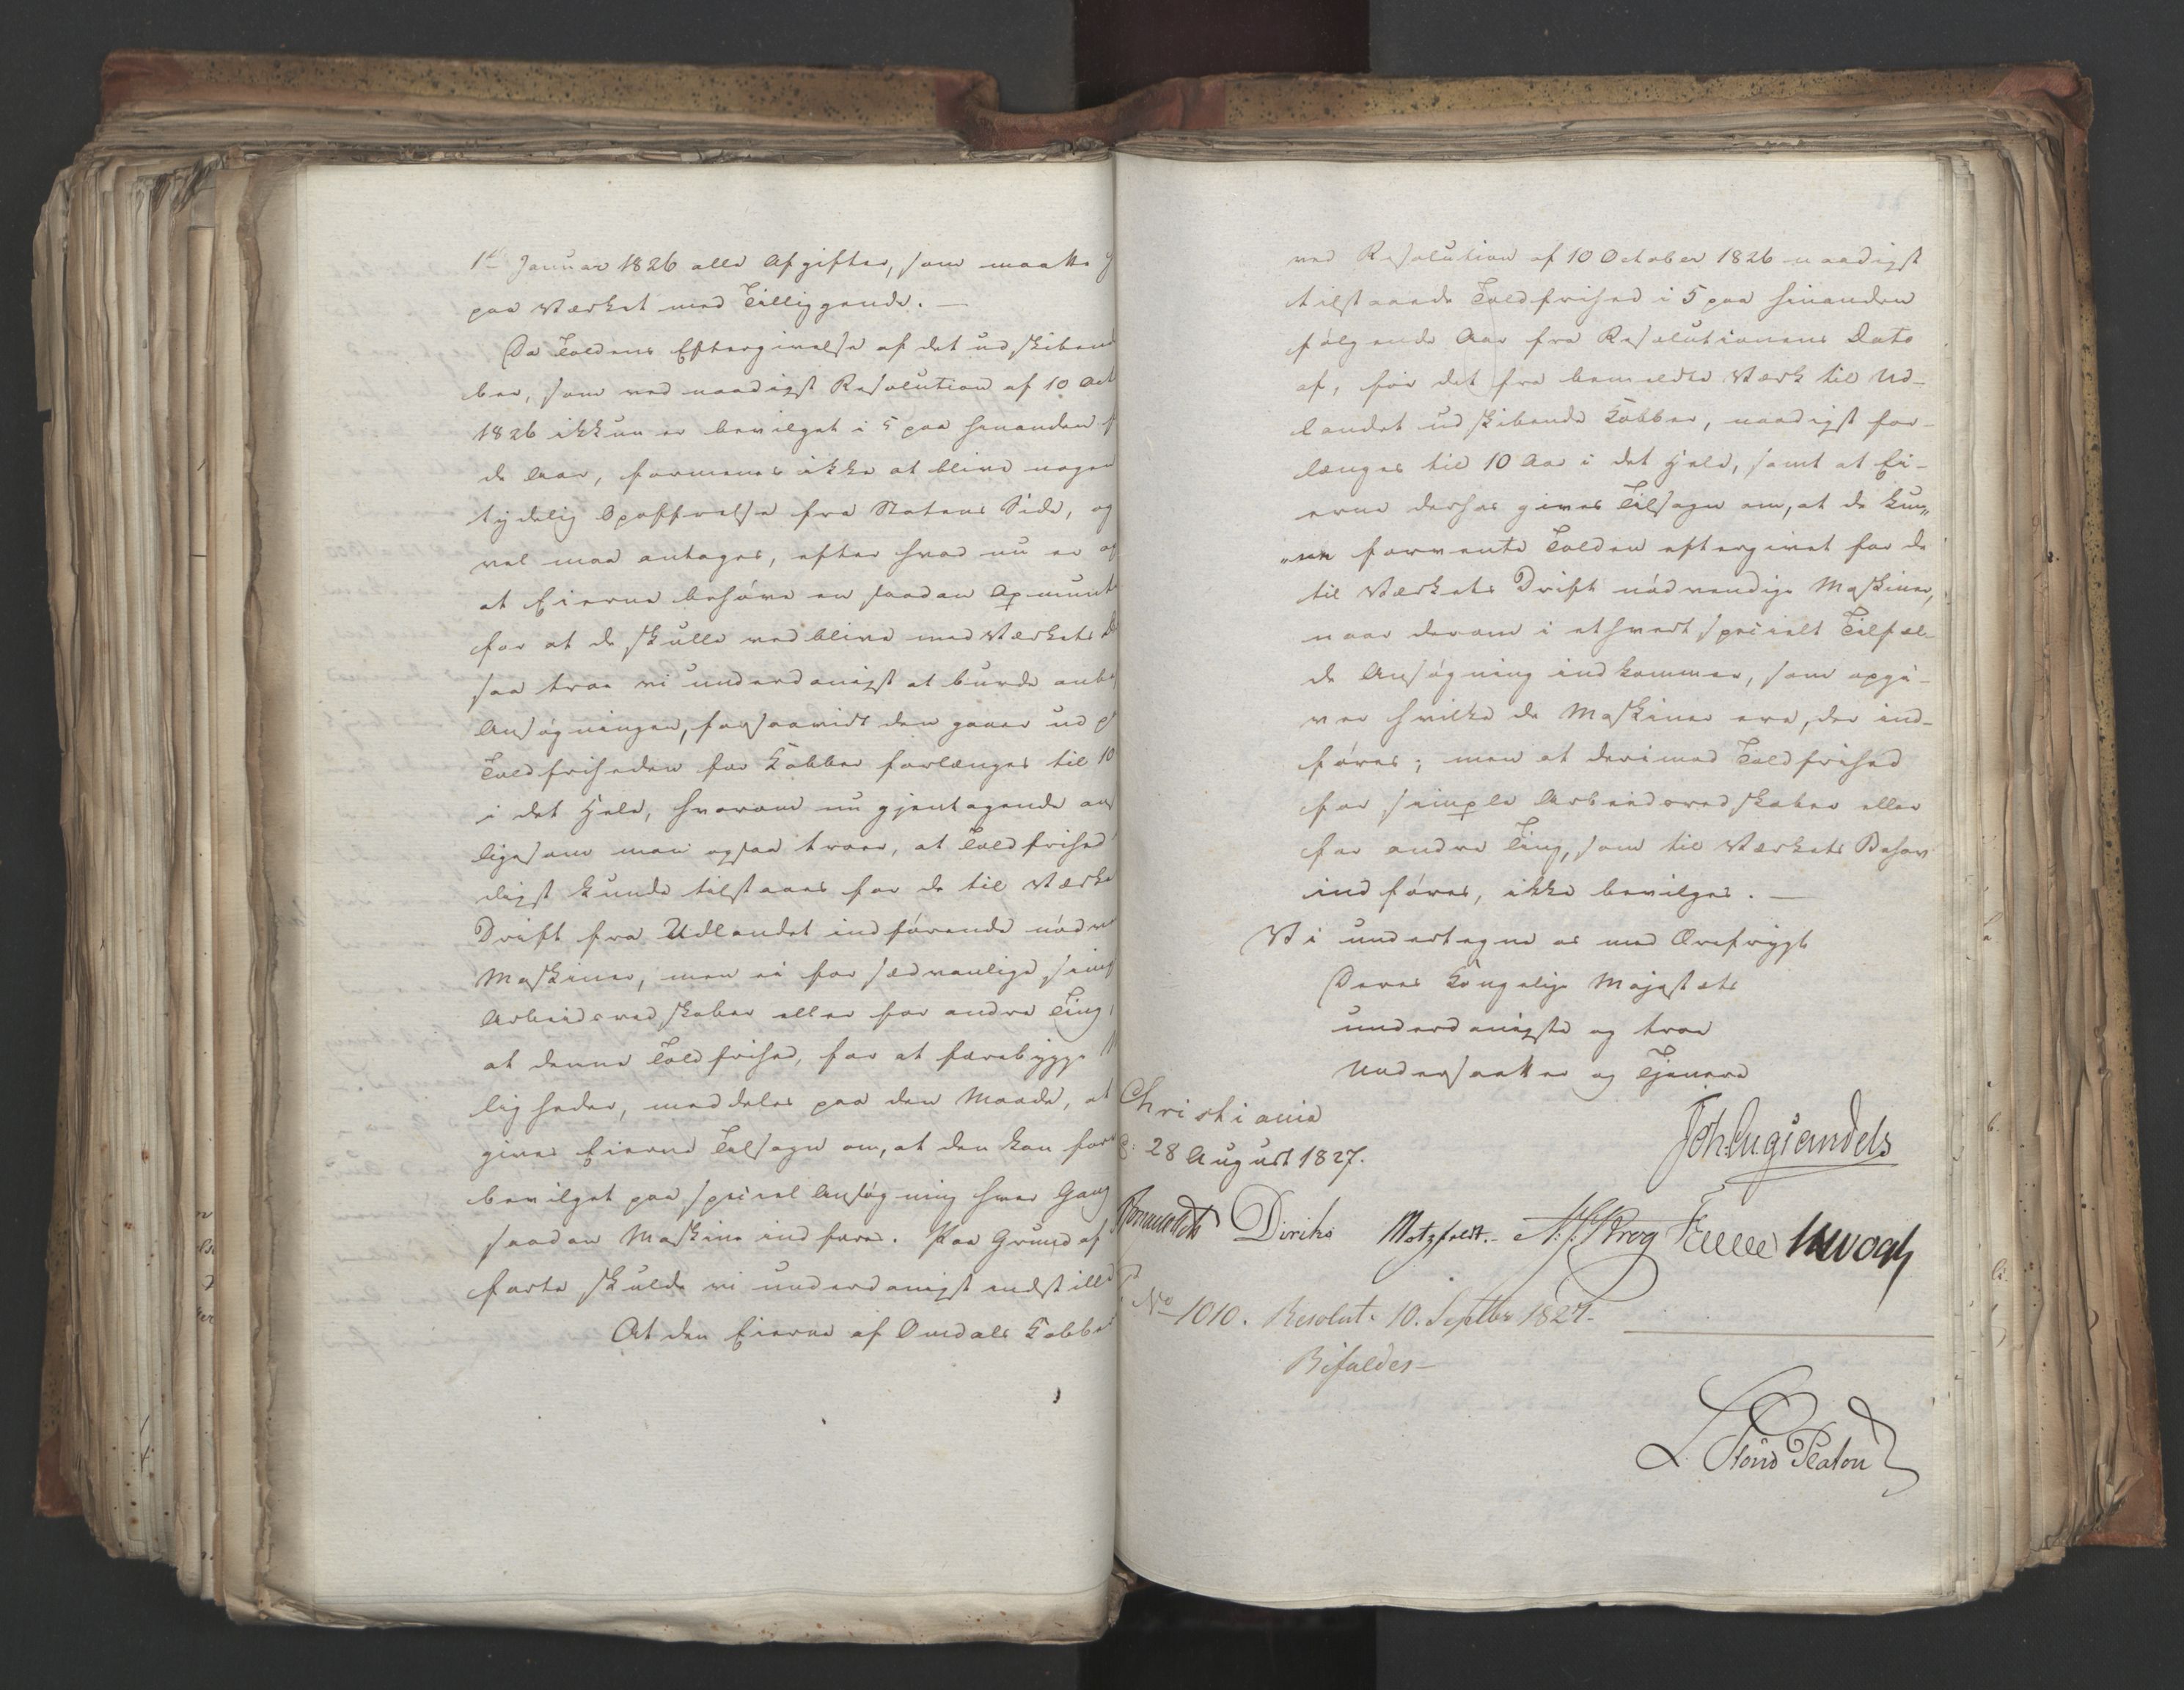 1ste Januar 1826 alle Afgifter, som maatte
paa Værket med Tilliggende. —
Da Toldens Eftergivelse af det udskibend
ber, som ved naadigst Resolution af 10 Oct
1826 ikkun er bevilget i 5 paa hinanden f
de Aar, formenes ikke at blive nogen
tydelig Opoffrelse fra Statens Side, og
vel maa antages, efter hvad nu er op
at Eierne behøve en saadan Opmunt
for at de skulle vedblive med Værkets D
saa troe vi underdanigst at burde anbe
Ansøgningen, forsaavidt den gaaer ud p
Toldfriheden for Kobber forlænges til 10
i det Hele, hvorom nu gjentagende ans
ligesom man ogsaa troer, at Toldfrihed
digst kunde tilstaaes for de til Værke
Drift fra Udlandet indførende nødve
Maskiner, men ei for sædvanlige simp
Arbeidsredskaber eller for andre Ting,
at denne Toldfrihed, for at forebygge
ligheder, meddeles paa den Maade, at
gives Eierne Tilsagn om, at den kan for
bevilget paa speciel Ansøgning hver Gang
saadan Maskine indføres. Paa Grund af
førte skulde vi underdanigst indstille
At den Eierne af Omdals Kobbe
ved Resolution af 10 October 1826 naadigst
tilstaaede Toldfrihed i 5 paa hinanden
følgende Aar fra Resolutionens Dato
af, for det fra bemeldte Værk til Ud-
landet udskibende Kobber, naadigst for-
længes til 10 Aar i det Hele, samt at Ei-
erne derhos gives Tilsagn om, at de kun„
„ne forvente Tolden eftergivet for de
til Værkets Drift nødvendige Maskiner,
naar derom i ethvert specielt Tilfæl-
de Ansøgning indkommer, som opgi-
ver hvilke de Maskiner ere, der ind-
føres; men at derimod Toldfrihed
for simple Arbeidsredskaber eller
for andre Ting, som til Værkets Behov
indføres, ikke bevilges. —
Vi undertegne os med Ærefrygt
Deres Kongelige Majestæts
underdanigste og troe
Undersaatter og Tjenere
Christiania
d: 28 August 1827.
Joh. Aug. Sandels
Diriks Motzfeldt. Krog Vogt
No 1010. Resolut. 10. Septbr 1827.
Bifaldes—
L. Stoud Platou